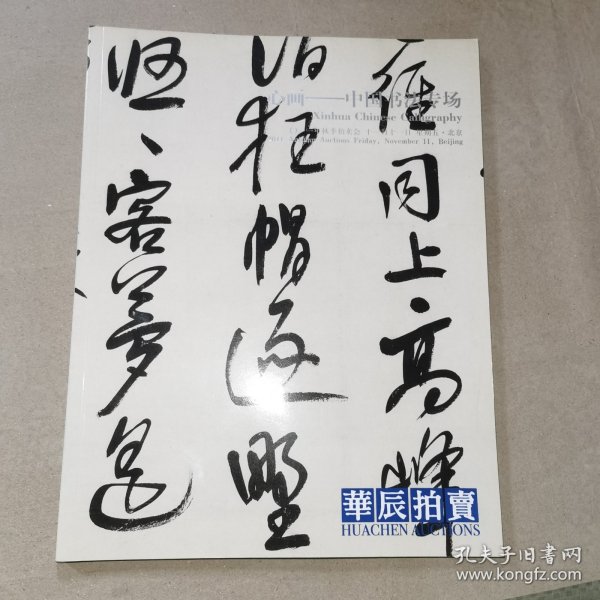 心画——中国书法专场
Xinhua Chinese Calligraphy
秋季拍卖会 十一月十一日 星期五·北京
Auctions Friday, November 11, Beijing
同上高峰
狂帽逐野
客梦遥
華辰拍賣
HUACHEN AUCTIONS
孔夫子旧书网
www.kongfz.com